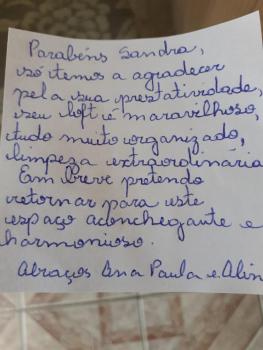 Parabéns Sandra,
só temos a agradecer
pela sua prestatividade,
seu loft é maravilhoso,
tudo muito organizado,
limpeza extraordinária
Em Breve pretendo
retornar para este
espaço aconchegante e
harmonioso.
Abraços Ana Paula e Alin